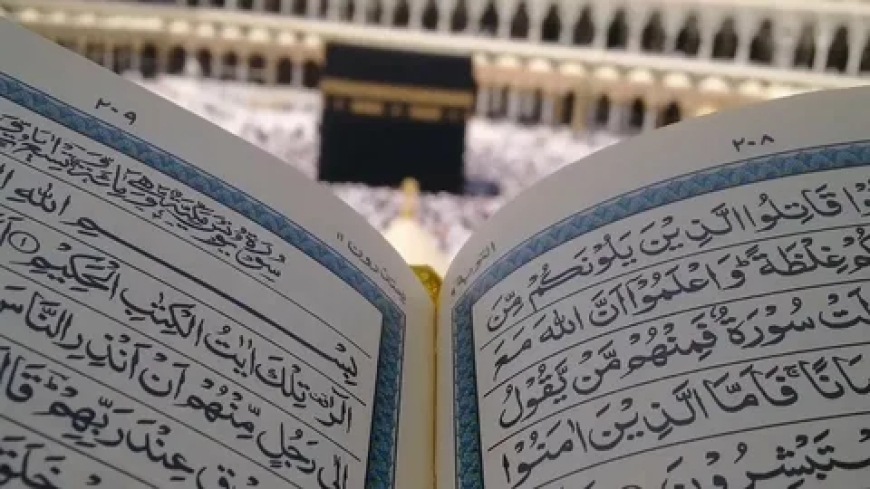 ٢٠٨
التوبة ٩
قَاتِلُوا الَّذِيْنَ يَلُوْنَكُمْ مِّنَ
غِلْظَةً ؕ وَاعْلَمُوْۤا اَنَّ اللّٰهَ مَعَ
سُوْرَةٌ فَمِنْهُمْ مَّنْ يَّقُوْلُ
فَاَمَّا الَّذِيْنَ اٰمَنُوْا
يَسْتَبْشِرُوْنَ
٢٠٩
يعتذرون ١١
سُوْرَةُ
بِسْمِ اللّٰهِ
الٓرٰ تِلْكَ اٰيٰتُ الْكِتٰبِ الْحَكِيْمِ ١
اِلٰى رَجُلٍ مِّنْهُمْ اَنْ اَنْذِرِ النَّاسَ
عِنْدَ رَبِّهِمْ ؕ قَالَ
خَلَقَ